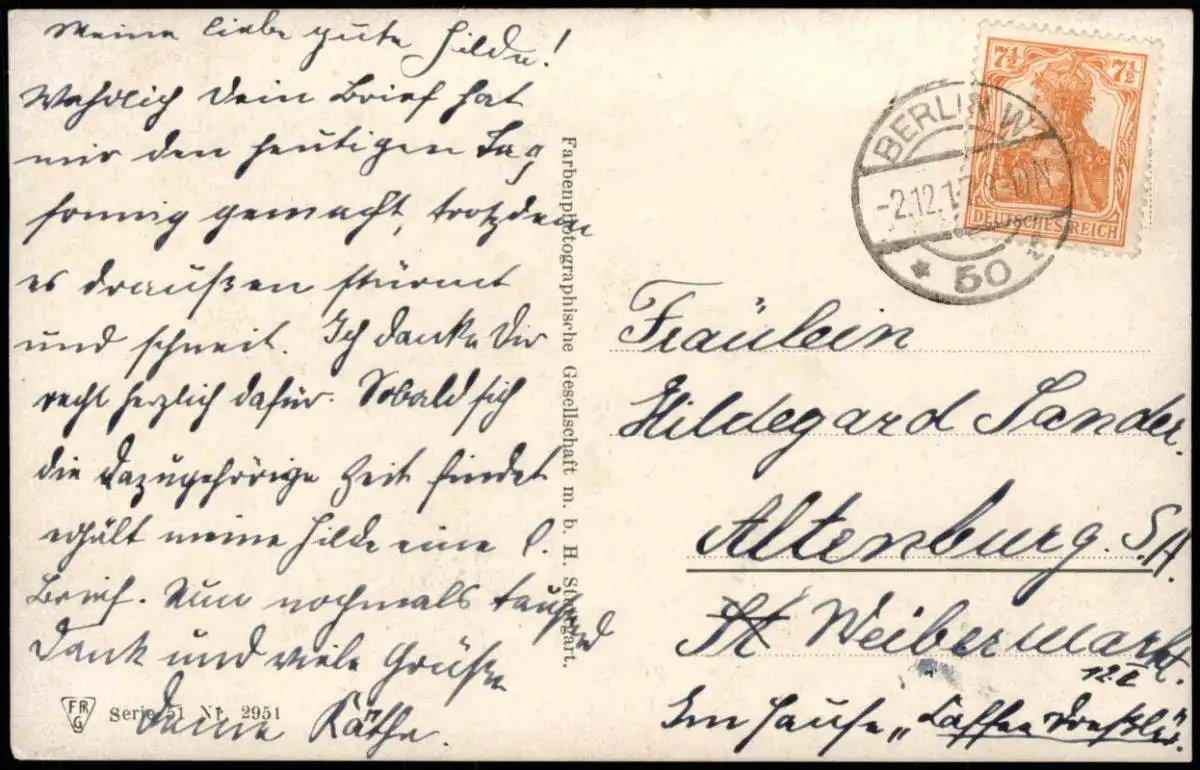 Meine liebe gute Hilde!
Wahrlich Dein Brief hat
mir den heutigen Tag
sonnig gemacht, trotzdem
es draußen stürmt
und schneit. Ich danke Dir
recht herzlich dafür. Sobald sich
die dazugehörige Zeit findet
erhält meine Hilde eine l.
Brief. Nun nochmals tausend
Dank und viele Grüße
Deine Käthe.
FRG
Serie 51 Nr. 2951
Farbenphotographische Gesellschaft m. b. H. Stuttgart.
7½ 7½
DEUTSCHES REICH
BERLIN W
-2.12.17. 9-10N
* 50
Fräulein
Hildegard Sander.
Altenburg. S./A.
Weibermarkt.
12 I
Im Hause „Caffee